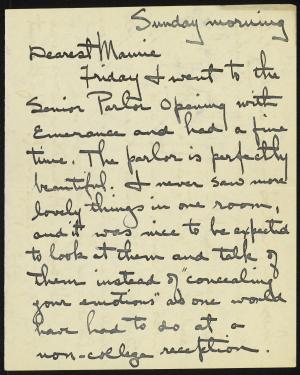 Sunday morning
Dearest Mamie
Friday I went to the
Senior Parlor Opening with
Emerance and had a fine
time. The parlor is perfectly
beautiful. I never saw more
lovely things in one room,
and it was nice to be expected
to look at them and talk of
them instead of "concealing
your emotions" as one would
have had to do at a
non-college reception.